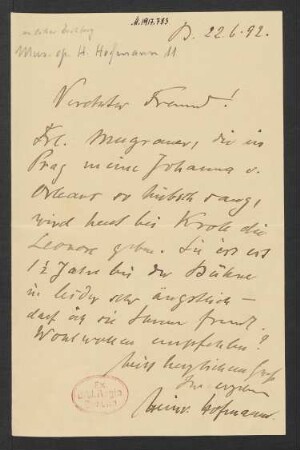 M.1917.783
B. 22.6.92.
Mus. ep. H. Hofmann 11
Verehrter Freund!
Frl. Mugrauer, die in
Prag meine Johanna v.
Orleans so hübsch sang,
wird heut bei Kroll die
Leonore geben. Sie ist erst
1½ Jahre bei der Bühne
u. leider sehr ängstlich –
darf ich sie Ihrem freundl.
Wohlwollen empfehlen?
Mit herzlichem Gruß
Ihr ergeben
Heinr. Hofmann.
Ex
Bibl. Regia
Berolin.